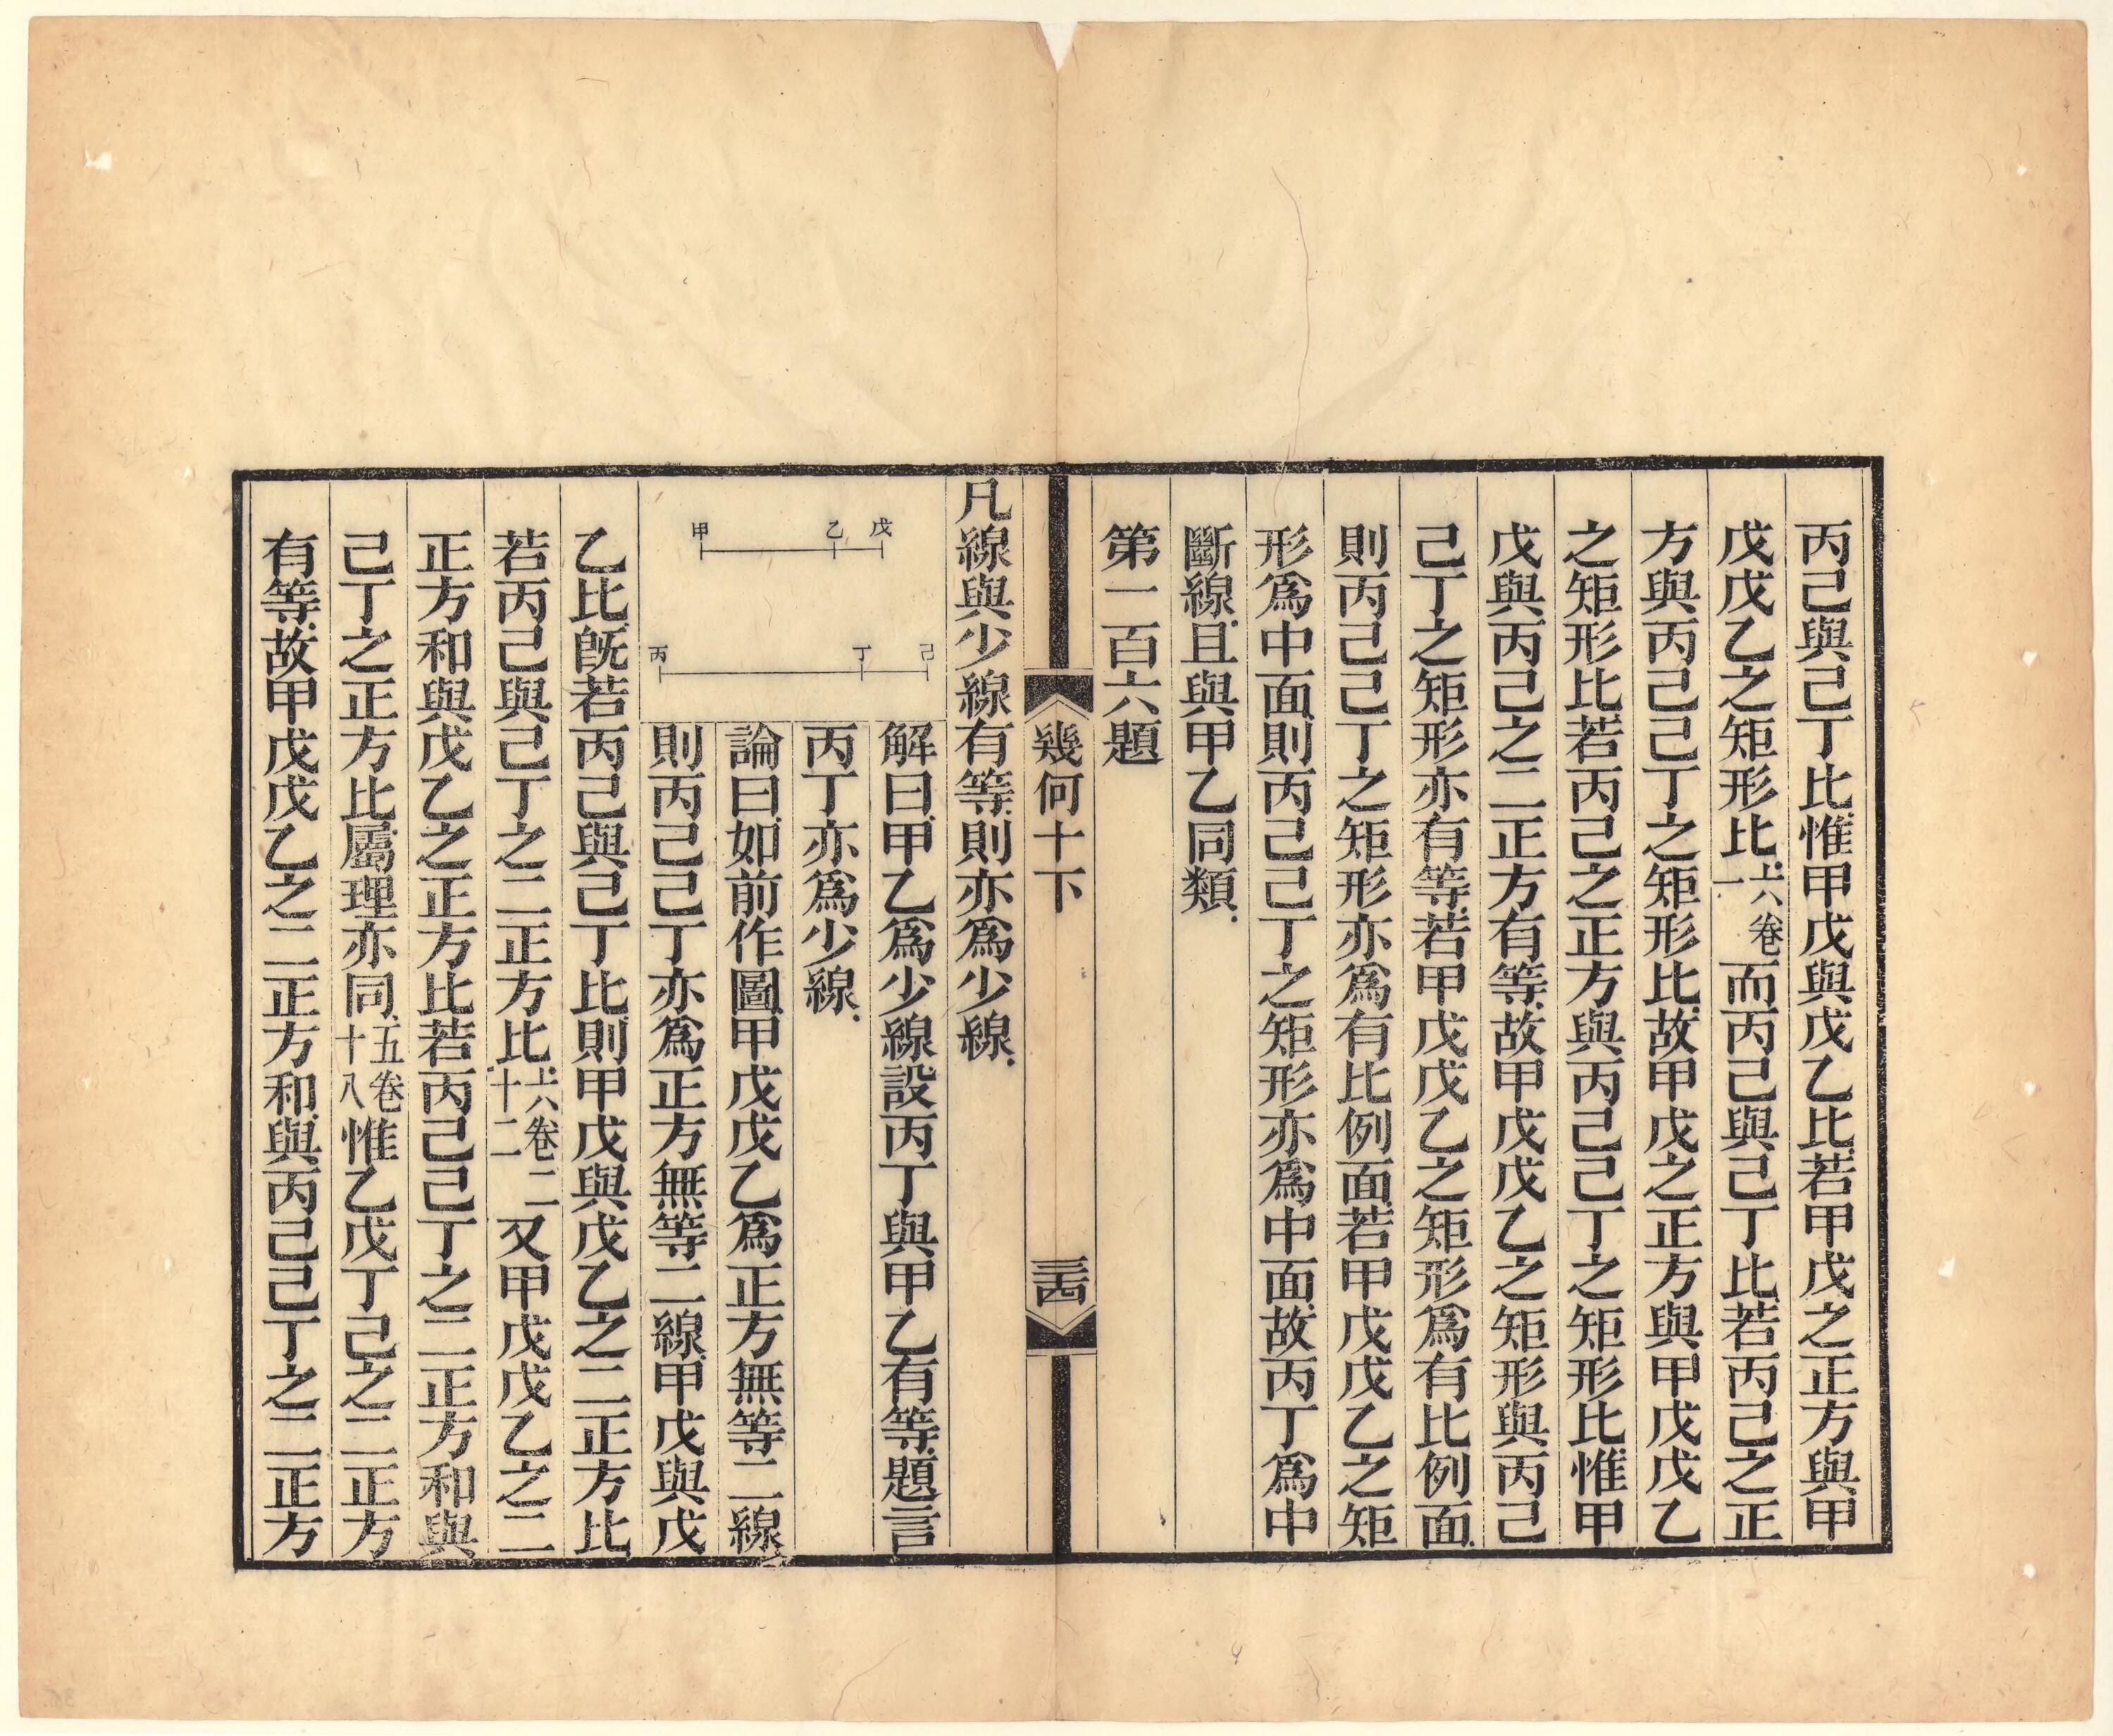 丙己與己丁比惟甲戊與戊乙比若甲戊之正方與甲
戊戊乙之矩形比六卷一上而丙己與己丁比若丙己之正
方與丙己己丁之矩形比故甲戊之正方與甲戊戊乙
之矩形比若丙己之正方與丙己己丁之矩形比惟甲
戊與丙己之二正方有等故甲戊戊乙之矩形與丙己
己丁之矩形亦有等若甲戊戊乙之矩形爲有比例面
則丙己己丁之矩形亦爲有比例面若甲戊戊乙之矩
形爲中面則丙己己丁之矩形亦爲中面故丙丁爲中
斷線且與甲乙同類
第一百六題
幾何十下
三四
凡線與少線有等則亦爲少線
解曰甲乙爲少線設丙丁與甲乙有等題言
丙丁亦爲少線
論曰如前作圖甲戊戊乙爲正方無等二線
則丙己己丁亦爲正方無等二線甲戊與戊
甲 乙 戊
丙 丁 己
乙比旣若丙己與己丁比則甲戊與戊乙之二正方比
若丙己與己丁之二正方比六卷二十二上又甲戊戊乙之二
正方和與戊乙之正方比若丙己己丁之二正方和與
己丁之正方比屬理亦同五卷十八惟乙戊丁己之二正方
有等故甲戊戊乙之二正方和與丙己己丁之二正方